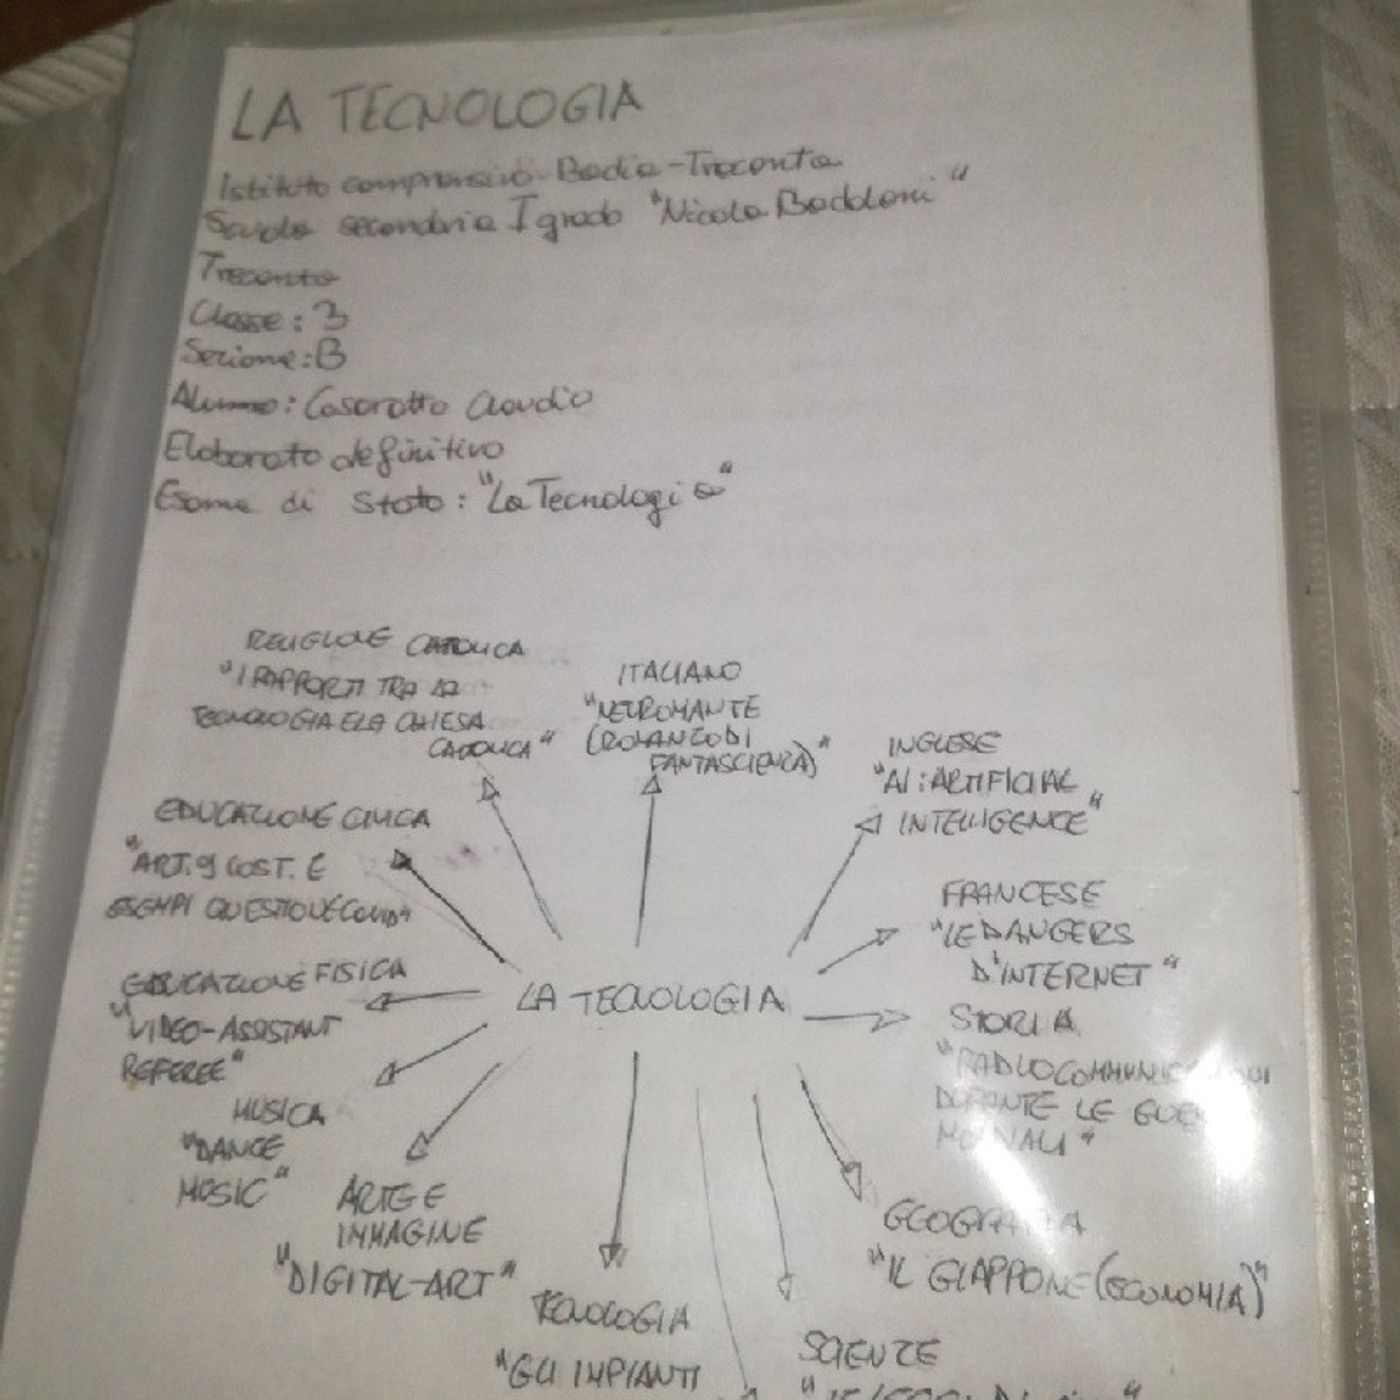 LA TECNOLOGIA
Istituto comprensivo Badia-Trecenta
Scuola secondaria I grado "Nicola Badaloni"
Trecenta
Classe: 3
Sezione: B
Alunno: Casarotto Claudio
Elaborato definitivo
Esame di Stato: "La Tecnologia"
RELIGIONE CATTOLICA
"I RAPPORTI TRA LA
TECNOLOGIA E LA CHIESA
CATTOLICA"
ITALIANO
"NEUROMANTE
(ROMANZO DI
FANTASCIENZA)"
INGLESE
"AI: ARTIFICIAL
INTELLIGENCE"
EDUCAZIONE CIVICA
"ART. 9 COST. E
ESEMPI QUESTIONE COVID"
FRANCESE
"LE DANGERS
D'INTERNET"
EDUCAZIONE FISICA
"VIDEO-ASSISTANT
REFEREE"
LA TECNOLOGIA
STORIA
"RADIOCOMMUNICAZIONI
DURANTE LE GUERRE
MONDIALI"
MUSICA
"DANCE
MUSIC"
ARTE E
IMMAGINE
"DIGITAL-ART"
GEOGRAFIA
"IL GIAPPONE (ECONOMIA)"
TECNOLOGIA
"GLI IMPIANTI
SCIENZE